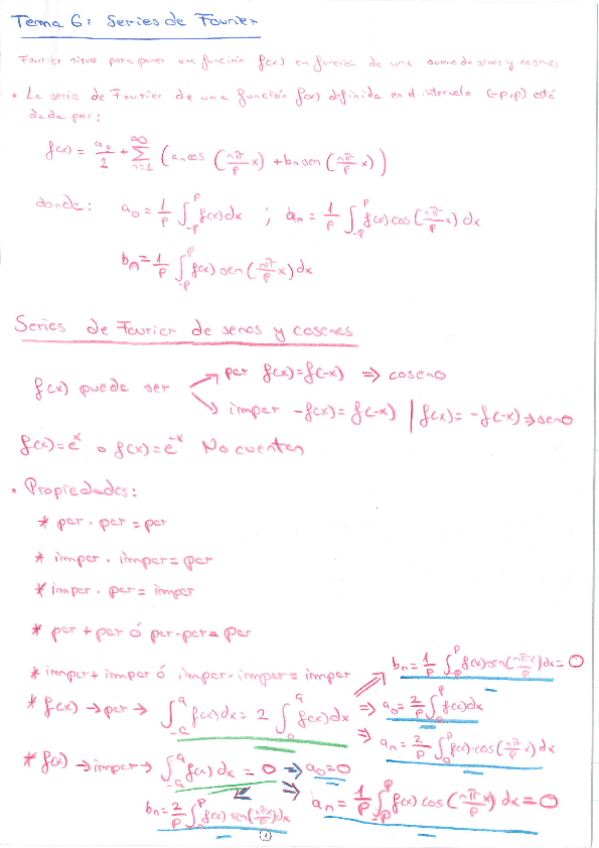 Tema 6: Series de Fourier
Fourier sirve para poner una función f(x) en función de una suma de senos y cosenos
• La serie de Fourier de una función f(x) definida en el intervalo (-p,p) está
dada por:
f(x) = a₀/2 + ∑_{n=1}^{∞} (aₙ cos (nπ/p x) + bₙ sen (nπ/p x))
donde: a₀ = 1/p ∫_{-p}^{p} f(x) dx ; aₙ = 1/p ∫_{-p}^{p} f(x) cos (nπ/p x) dx
bₙ = 1/p ∫_{-p}^{p} f(x) sen (nπ/p x) dx
Series de Fourier de senos y cosenos
f(x) puede ser
→ par f(x) = f(-x) ⇒ coseno
→ impar -f(x) = f(-x) | f(x) = -f(-x) ⇒ seno
f(x) = eˣ o f(x) = e⁻ˣ No cuentan
• Propiedades:
* par · par = par
* impar · impar = par
* impar · par = impar
* par + par ó par - par = par
* impar + impar ó impar - impar = impar
* f(x) → par → ∫_{-a}^{a} f(x) dx = 2 ∫_{0}^{a} f(x) dx
⇒ bₙ = 1/p ∫_{-p}^{p} f(x) sen (nπx/p) dx = 0
⇒ a₀ = 2/p ∫_{0}^{p} f(x) dx
⇒ aₙ = 2/p ∫_{0}^{p} f(x) · cos (nπ/p x) dx
* f(x) → impar → ∫_{-a}^{a} f(x) dx = 0 ⇒ a₀ = 0
⇒ aₙ = 1/p ∫_{-p}^{p} f(x) cos (nπ/p x) dx = 0
bₙ = 2/p ∫_{0}^{p} f(x) sen (nπx/p) dx
1